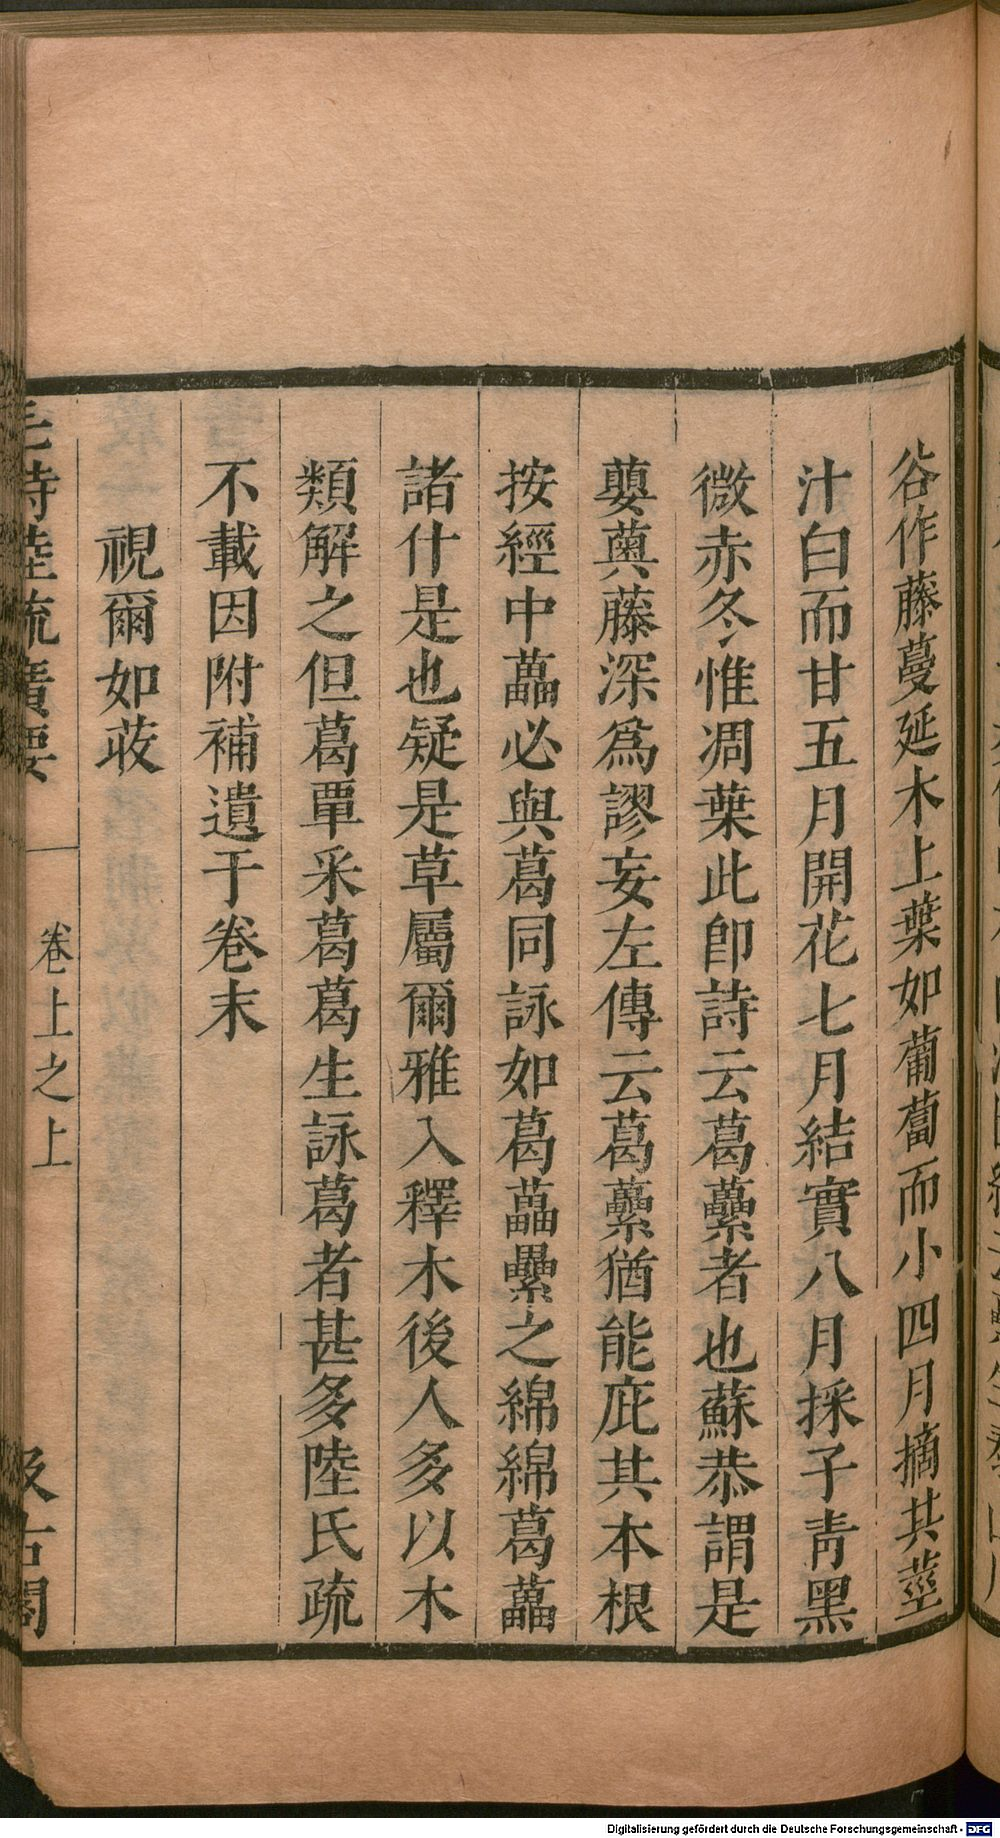 谷作藤蔓延木上葉如葡萄而小四月摘其莖
汁白而甘五月開花七月結實八月採子青黑
微赤冬惟凋葉此卽詩云葛藟者也蘇恭謂是
蘡薁藤深爲謬妄左傳云葛藟猶能庇其本根
按經中藟必與葛同詠如葛藟纍之綿綿葛藟
諸什是也疑是草屬爾雅入釋木後人多以木
類解之但葛覃采葛葛生詠葛者甚多陸氏疏
不載因附補遺于卷末
視爾如荍
毛詩陸疏廣要
卷上之上
汲古閣
Digitalisierung gefördert durch die Deutsche Forschungsgemeinschaft - DFG